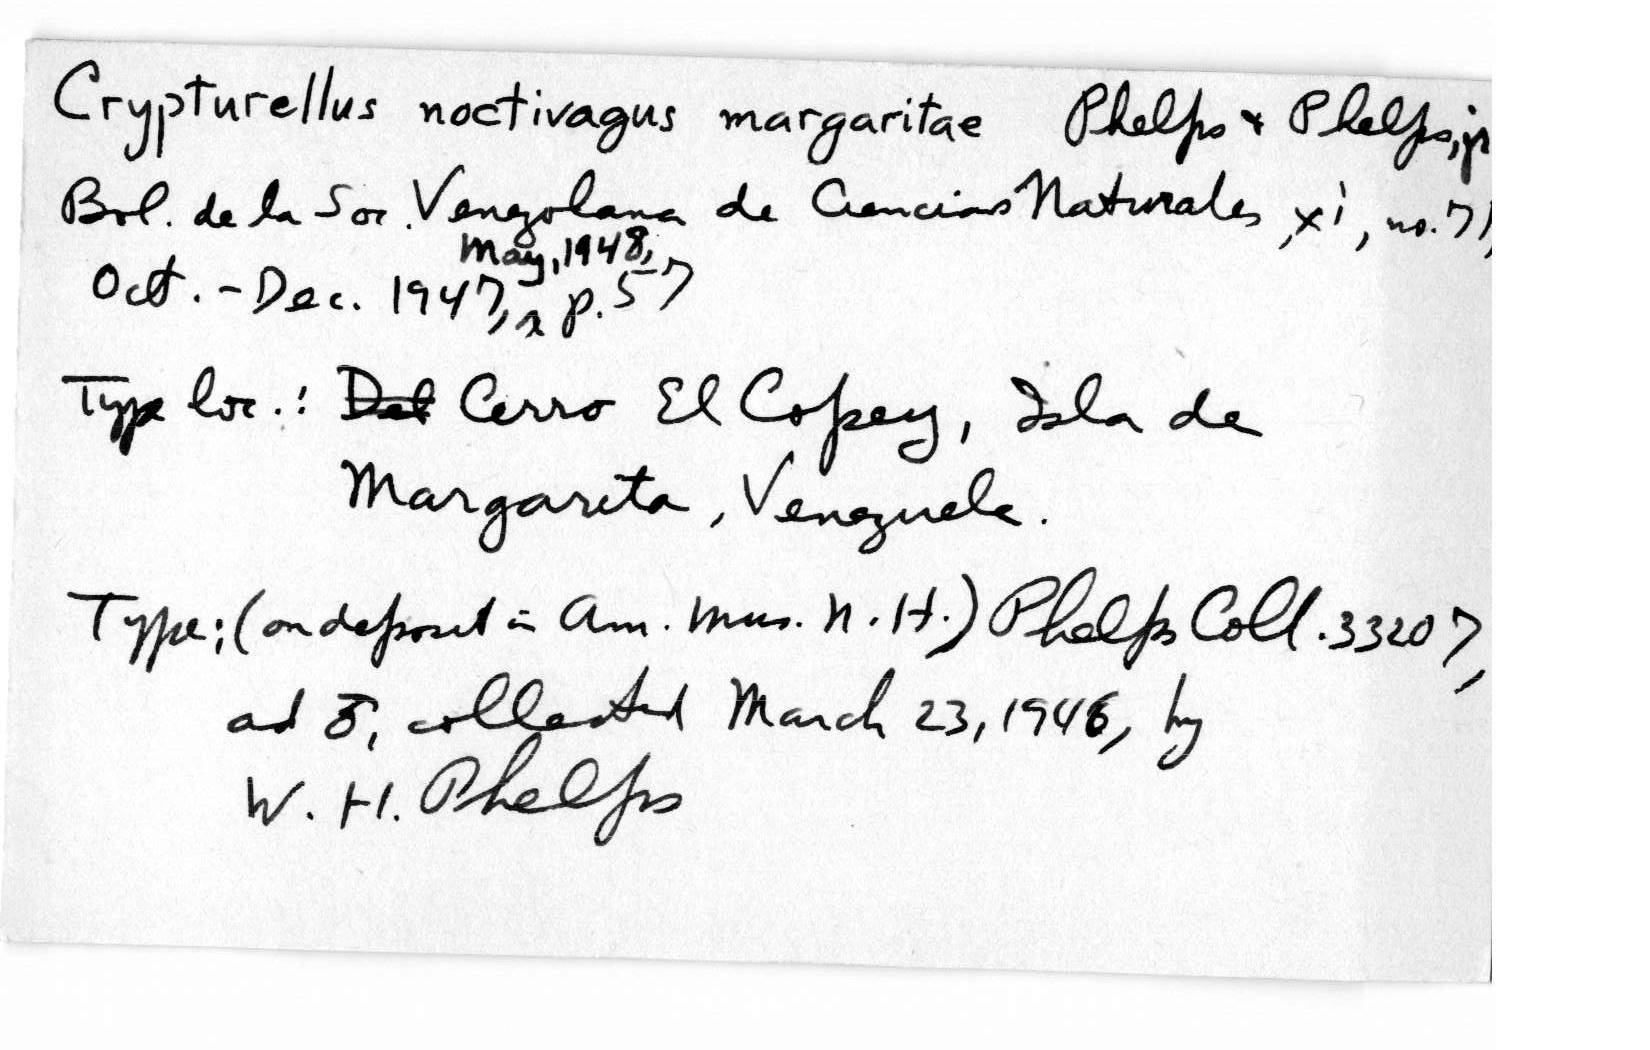 Crypturellus noctivagus margaritae Phelps & Phelps, jr
Bol. de la Soc. Venezolana de Ciencias Naturales, xi, no. 71,
May, 1948,
Oct. - Dec. 1947, ^ p. 57
Type loc.: Del Cerro El Copey, Isla de
Margarita, Venezuela.
Type: (on deposit in Am. Mus. N. H.) Phelps Coll. 33207,
ad ♂, collected March 23, 1946, by
W. H. Phelps